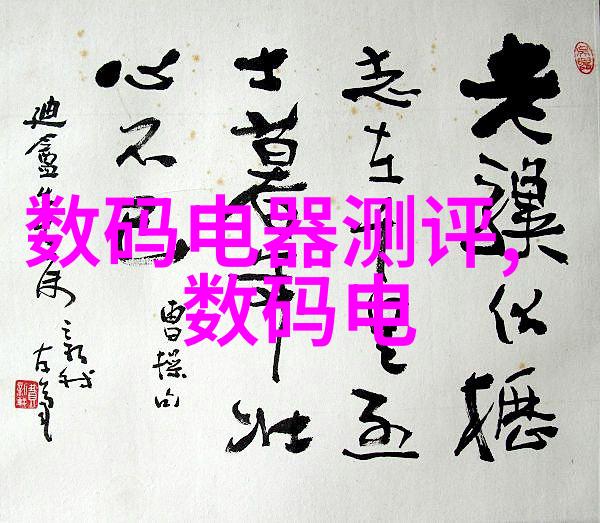 数码电器测评,
数码电
老驥伏櫪
志在千里烈
士暮年壮
心不已
曹操句